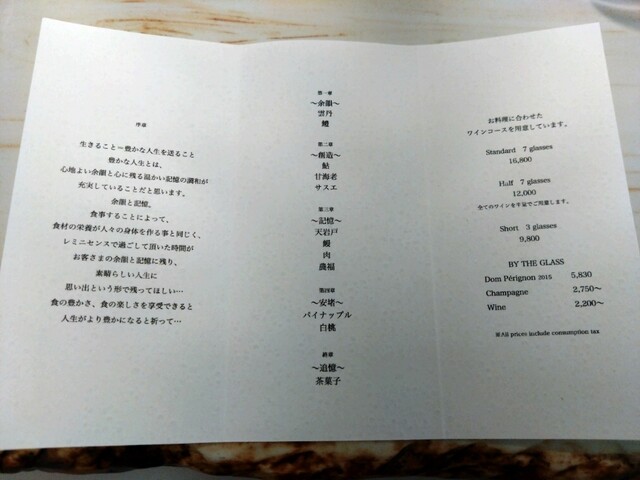 序章
生きること＝豊かな人生を送ること
豊かな人生とは、
心地よい余韻と心に残る温かい記憶の調和が
充実していることだと思います。
余韻と記憶。
食事することによって、
食材の栄養が人々の身体を作る事と同じく、
レミニセンスで過ごして頂いた時間が
お客さまの余韻と記憶に残り、
素晴らしい人生に
思い出という形で残ってほしい…
食の豊かさ、食の楽しさを享受できると
人生がより豊かになると祈って…
第一章
〜余韻〜
雲丹
鱧
第二章
〜創造〜
鮎
甘海老
サスエ
第三章
〜記憶〜
天岩戸
鰻
肉
農福
第四章
〜安堵〜
パイナップル
白桃
終章
〜追憶〜
茶菓子
お料理に合わせた
ワインコースを用意しています。
Standard 7 glasses
16,800
Half 7 glasses
12,000
全てのワインを半量でご用意します。
Short 3 glasses
9,800
BY THE GLASS
Dom Pérignon 2015 5,830
Champagne 2,750〜
Wine 2,200〜
※All prices include consumption tax